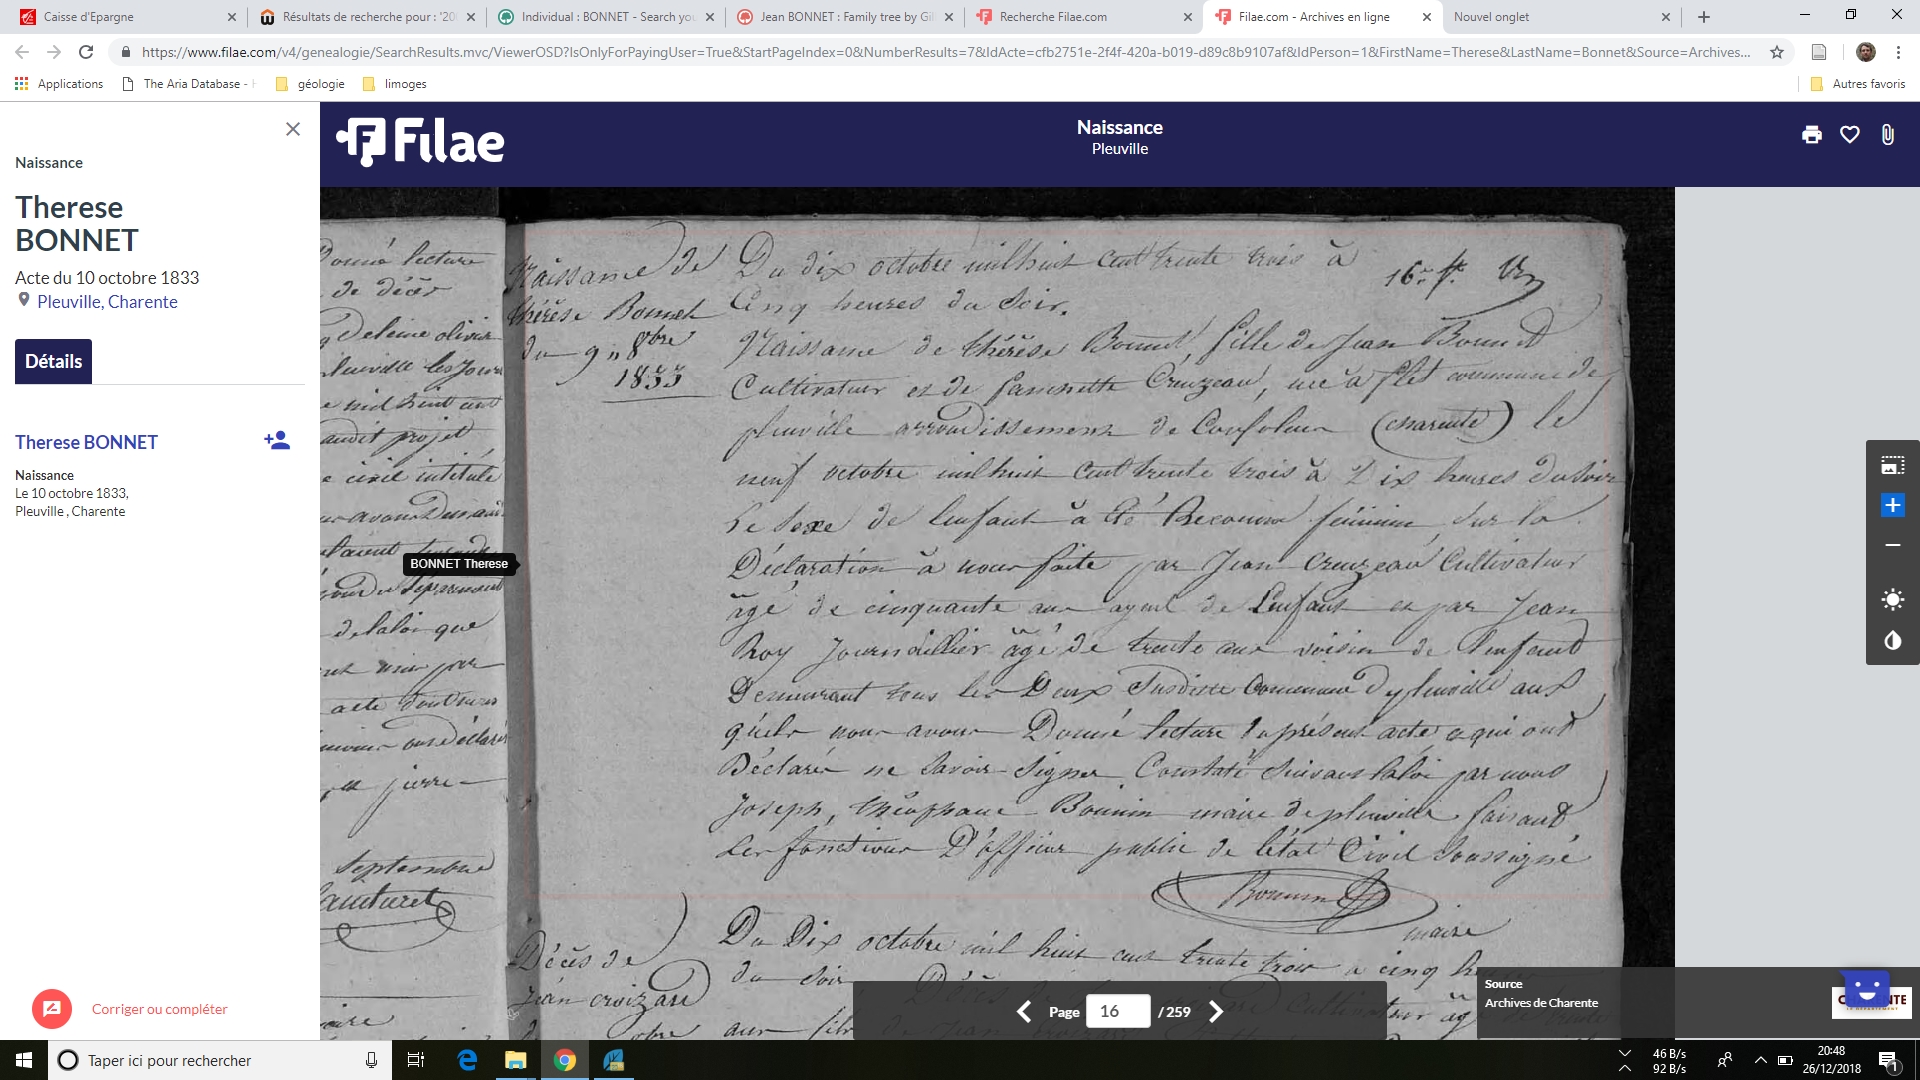 Caisse d'Epargne
Résultats de recherche pour : '20
Individual : BONNET - Search you
Jean BONNET : Family tree by Gil
Recherche Filae.com
Filae.com - Archives en ligne
Nouvel onglet
https://www.filae.com/v4/genealogie/SearchResults.mvc/ViewerOSD?IsOnlyForPayingUser=True&StartPageIndex=0&NumberResults=7&IdActe=cfb2751e-2f4f-420a-b019-d89c8b9107af&IdPerson=1&FirstName=Therese&LastName=Bonnet&Source=Archives...
Applications
The Aria Database -
géologie
limoges
Autres favoris
Naissance
Therese
BONNET
Acte du 10 octobre 1833
Pleuville, Charente
Détails
Therese BONNET
Naissance
Le 10 octobre 1833,
Pleuville , Charente
Corriger ou compléter
Filae
Naissance
Pleuville
Donné lecture
de décès
civil intitulé
de la loi que
pierre
Septembre
BONNET Therese
Naissance de
thérèse Bonnet
du 9 8bre
1833
16e f.
Du dix octobre mil huit cent trente trois à
Cinq heures du Soir.
Naissance de thérèse Bonnet, fille de Jean Bonnet
Cultivateur et de fannette Cruzeau, née à flet commune de
pleuville arrondissement de Confolens (charente) le
neuf octobre mil huit cent trente trois à Dix heures du Soir
Le Sexe de l'enfant à été Reconnu féminin Sur la
Déclaration à nous faite par Jean Cruzeau Cultivateur
âgé de cinquante ans ayeul de L'enfant et par Jean
Roy Journallier âgé de trente ans voisin de l'enfant
Demeurant tous les Deux Susditte Commune De pleuville aux
quels nous avons Donné lecture Du présent acte et qui ont
Déclaré ne Savoir Signer Constaté Suivant la loi par nous
Joseph, théophane Bonnin maire de pleuville faisant
Les fonctions D'officier public de l'état Civil Soussigné
Bonnin
maire
Décès de
Jean croizard
Du Dix octobre mil huit cent trente trois à cinq
du Soir Décès
Page 16 / 259
Source
Archives de Charente
CHARENTE
Taper ici pour rechercher
46 B/s
92 B/s
20:48
26/12/2018
1